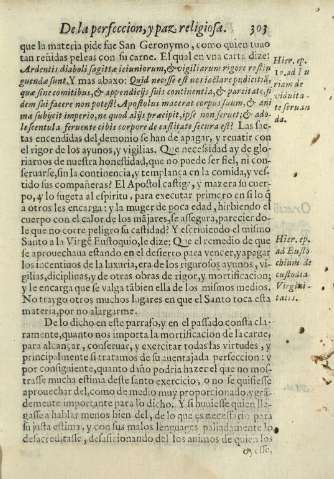 De la perfeccion, y paz religiosa. 303
que la materia pide fue San Geronymo, como quien tuuo
tan reñidas peleas con su carne. El qual en vna carta dize:
Ardentes diaboli sagittæ ieiuniorum, & vigiliarum rigore restin
guendæ sunt. Y mas abaxo: Quid necesse est nos iactare pudicitiā,
quæ sine comitibus, & appendicijs suis continentia, & parcitate, fi
dem sui facere non potest? Apostolus macerat corpus suum, & ani
mæ subijcit imperio, ne quod alijs præcipit, ipse non seruet; & ado
lescentula feruente cibis corpore de castitate secura est? Las sae
tas encendidas del demonio se han de apagar, y rebatir con
el rigor de los ayunos, y vigilias. Que necessidad ay de glo
riarnos de nuestra honestidad, que no puede ser fiel, ni con
seruarse, sin la continencia, y templança en la comida, y ves
tido sus compañeras? El Apostol castiga, y mazera su cuer
po, y lo sugeta al espiritu, para executar primero en si lo q̄
a otros les encarga: y la muger de poca edad, hirbiendo el
cuerpo con el calor de los májares, se assegura, parecier dole
de que no corre peligro su castidad? Y escriuiendo el mismo
Santo a la Virgē Eustoquio, le dize; Que el remedio de que
se aprouechaua estando en el desierto para vencer, y apagar
los incentiuos de la luxuria, era de los rigurosos ayunos, vi
gilias, disciplinas, y de otras obras de rigor, y mortificacion,
y le encarga que se valga tābien ella de los mismos medios.
No traygo otros muchos lugares en que el Santo toca esta
materia, por no alargarme.
De lo dicho en este parrafo, y en el passado consta cla-
ramente, quanto nos importa la mortificacion de la carne,
para alcançar, conseruar, y executar todas las virtudes, y
principalmente si tratamos de su auentajada perfeccion: y
por consiguiente, quanto daño podria hazer el que no mos-
trasse mucha estima deste santo exercicio, o no se quisiesse
aprouechar del, como de medio muy proporcionado, y grā-
demente importante para lo dicho. Y si huuiesse quien lle-
gasse a hablar menos bien del, de lo que es necessario para
su justa estima, y con sus malos lenguages paliadamente lo
desacreditasse, desaficionando del los animos de quien los
oyesse,
Hier. ep.
10. ad Fu
riam de
viduita-
te seruan
da.
Hier. ep.
ad Eusto
chium de
custodia
Virgini-
tatis.